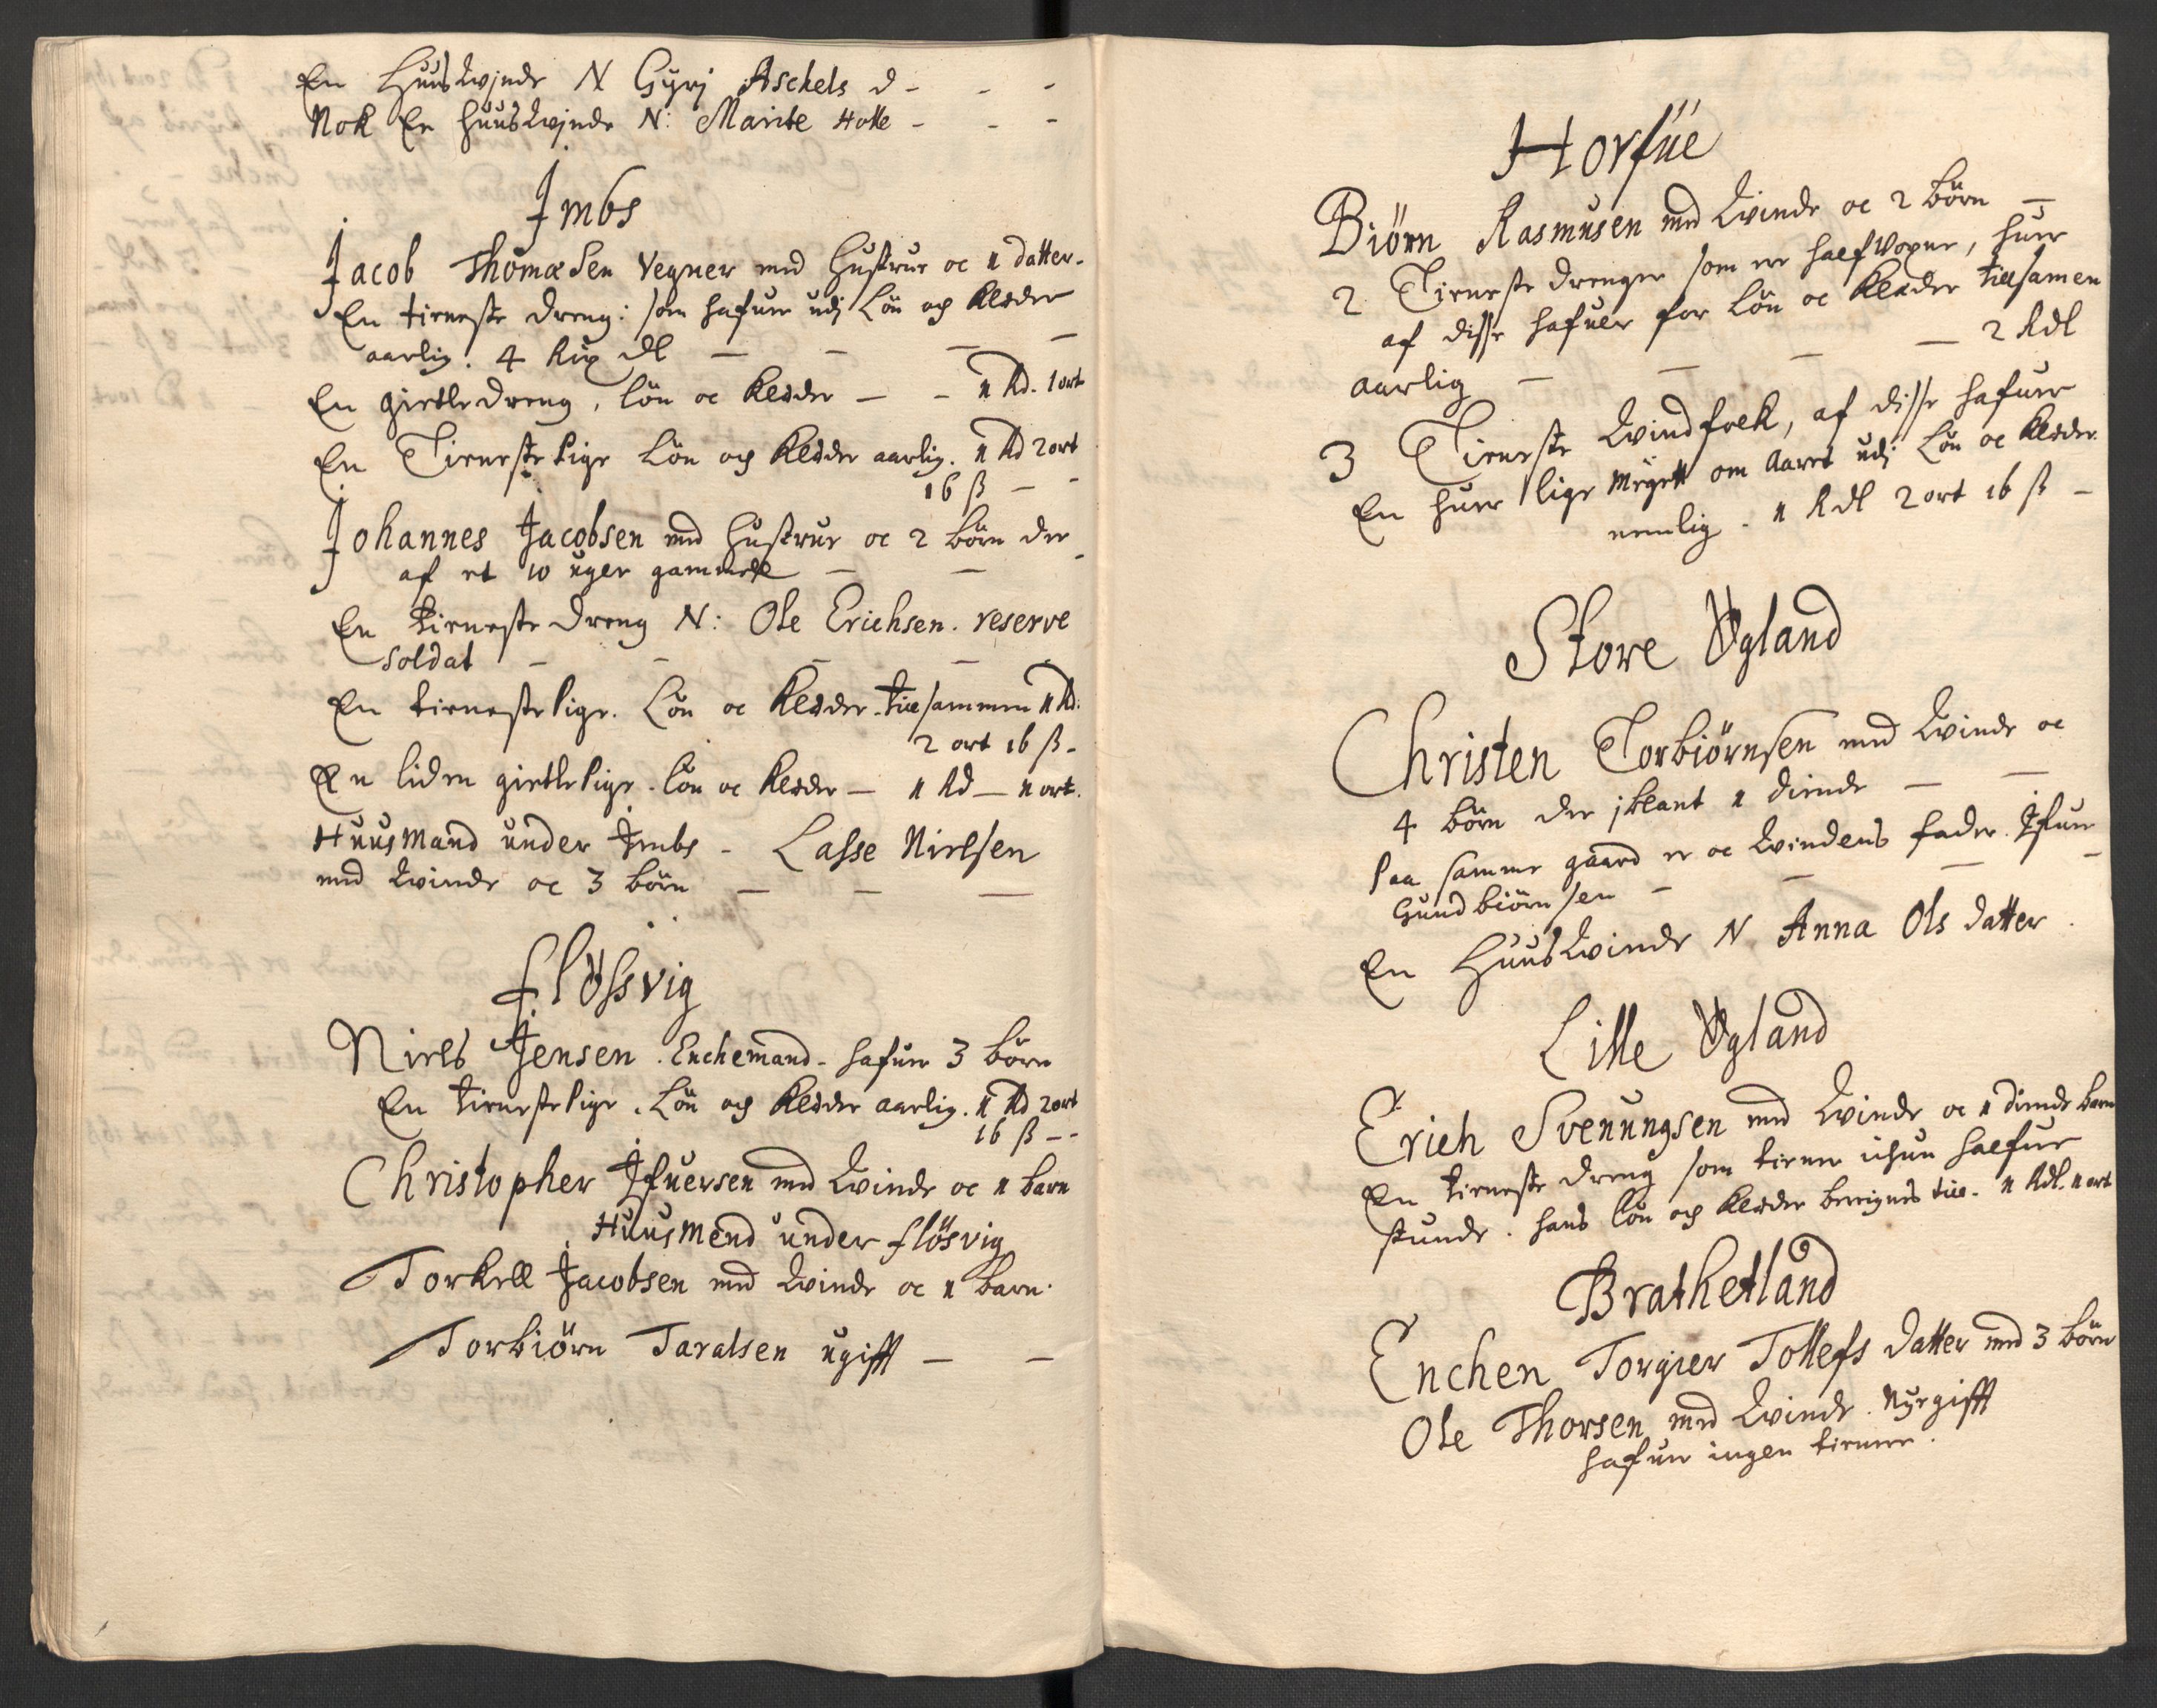 En Huus Kvinde N Gyri Aschels d - - -
Nok En huus Kvinde N: Marite Holle - - -
Imbs
Jacob Thomæsen Vegner med Hustrue oc 1 datter.
En tieneste dreng: som hafuer udj Løn og Klæder
aarlig. 4 Rix dl - - - -
En gietledreng, løn oc Klæder - - 1 Rd. 1 ort
En Tieneste Pige Løn og Klæder aarlig. 1 Rd 2 ort
16 ß - -
Johannes Jacobsen med Hustrue oc 2 børn der
af et 10 uger gammell - - -
En tieneste dreng N: Ole Erichsen. reserve
soldat - - - - -
En tieneste Pige. Løn oc Klæder tilsammen 1 Rd:
2 ort 16 ß -
En liden gietle Pige. løn oc Klæder - 1 Rd - 1 ort.
Huusmand under Imbs - Lasse Nielsen
med Kvinde oc 3 børn - - -
Fløssvig
Niels Jensen. Enchemand - hafuer 3 børn
En tieneste Pige. Løn og Klæder aarlig. 1 Rd 2 ort
16 ß - -
Christopher Ifuersen med Kvinde oc 1 barn
Huusmend under fløsvig
Torkell Jacobsen med Kvinde oc 1 barn.
Torbiörn Taralsen ugifft - -
Horfüe
Biörn Rasmusen med Kvinde oc 2 børn -
2 Tieneste drenger som er half Voxne, huer
af disse hafuer for Løn oc Klæder tilsamen
aarlig - - - - 2 Rdl
3 Tieneste Kvindfolk, af disse hafuer
En huer lige meget om Aaret udj Løn oc Klæder
nemlig - 1 Rdl 2 ort 16 ß -
Store Ögland
Christen Torbiörnsen med Kvinde oc
4 børn der iblant 1 diende - -
Paa samme gaard er oc Kvindens fader. Ifuer
Gundbiörnsen - - - -
En Huus Kvinde N Anna Ols datter.
Lille Ögland
Erich Svenungsen med Kvinde oc 1 diende barn
En tieneste dreng som tiener ichun halfue
stunde. hans løn og Klæder beregnes til. 1 Rdl. 1 ort
Brathetland
Enchen Torgier Tollefs datter med 3 børn
Ole Thorsen med Kvinde. Nyegifft
hafuer ingen tiener.